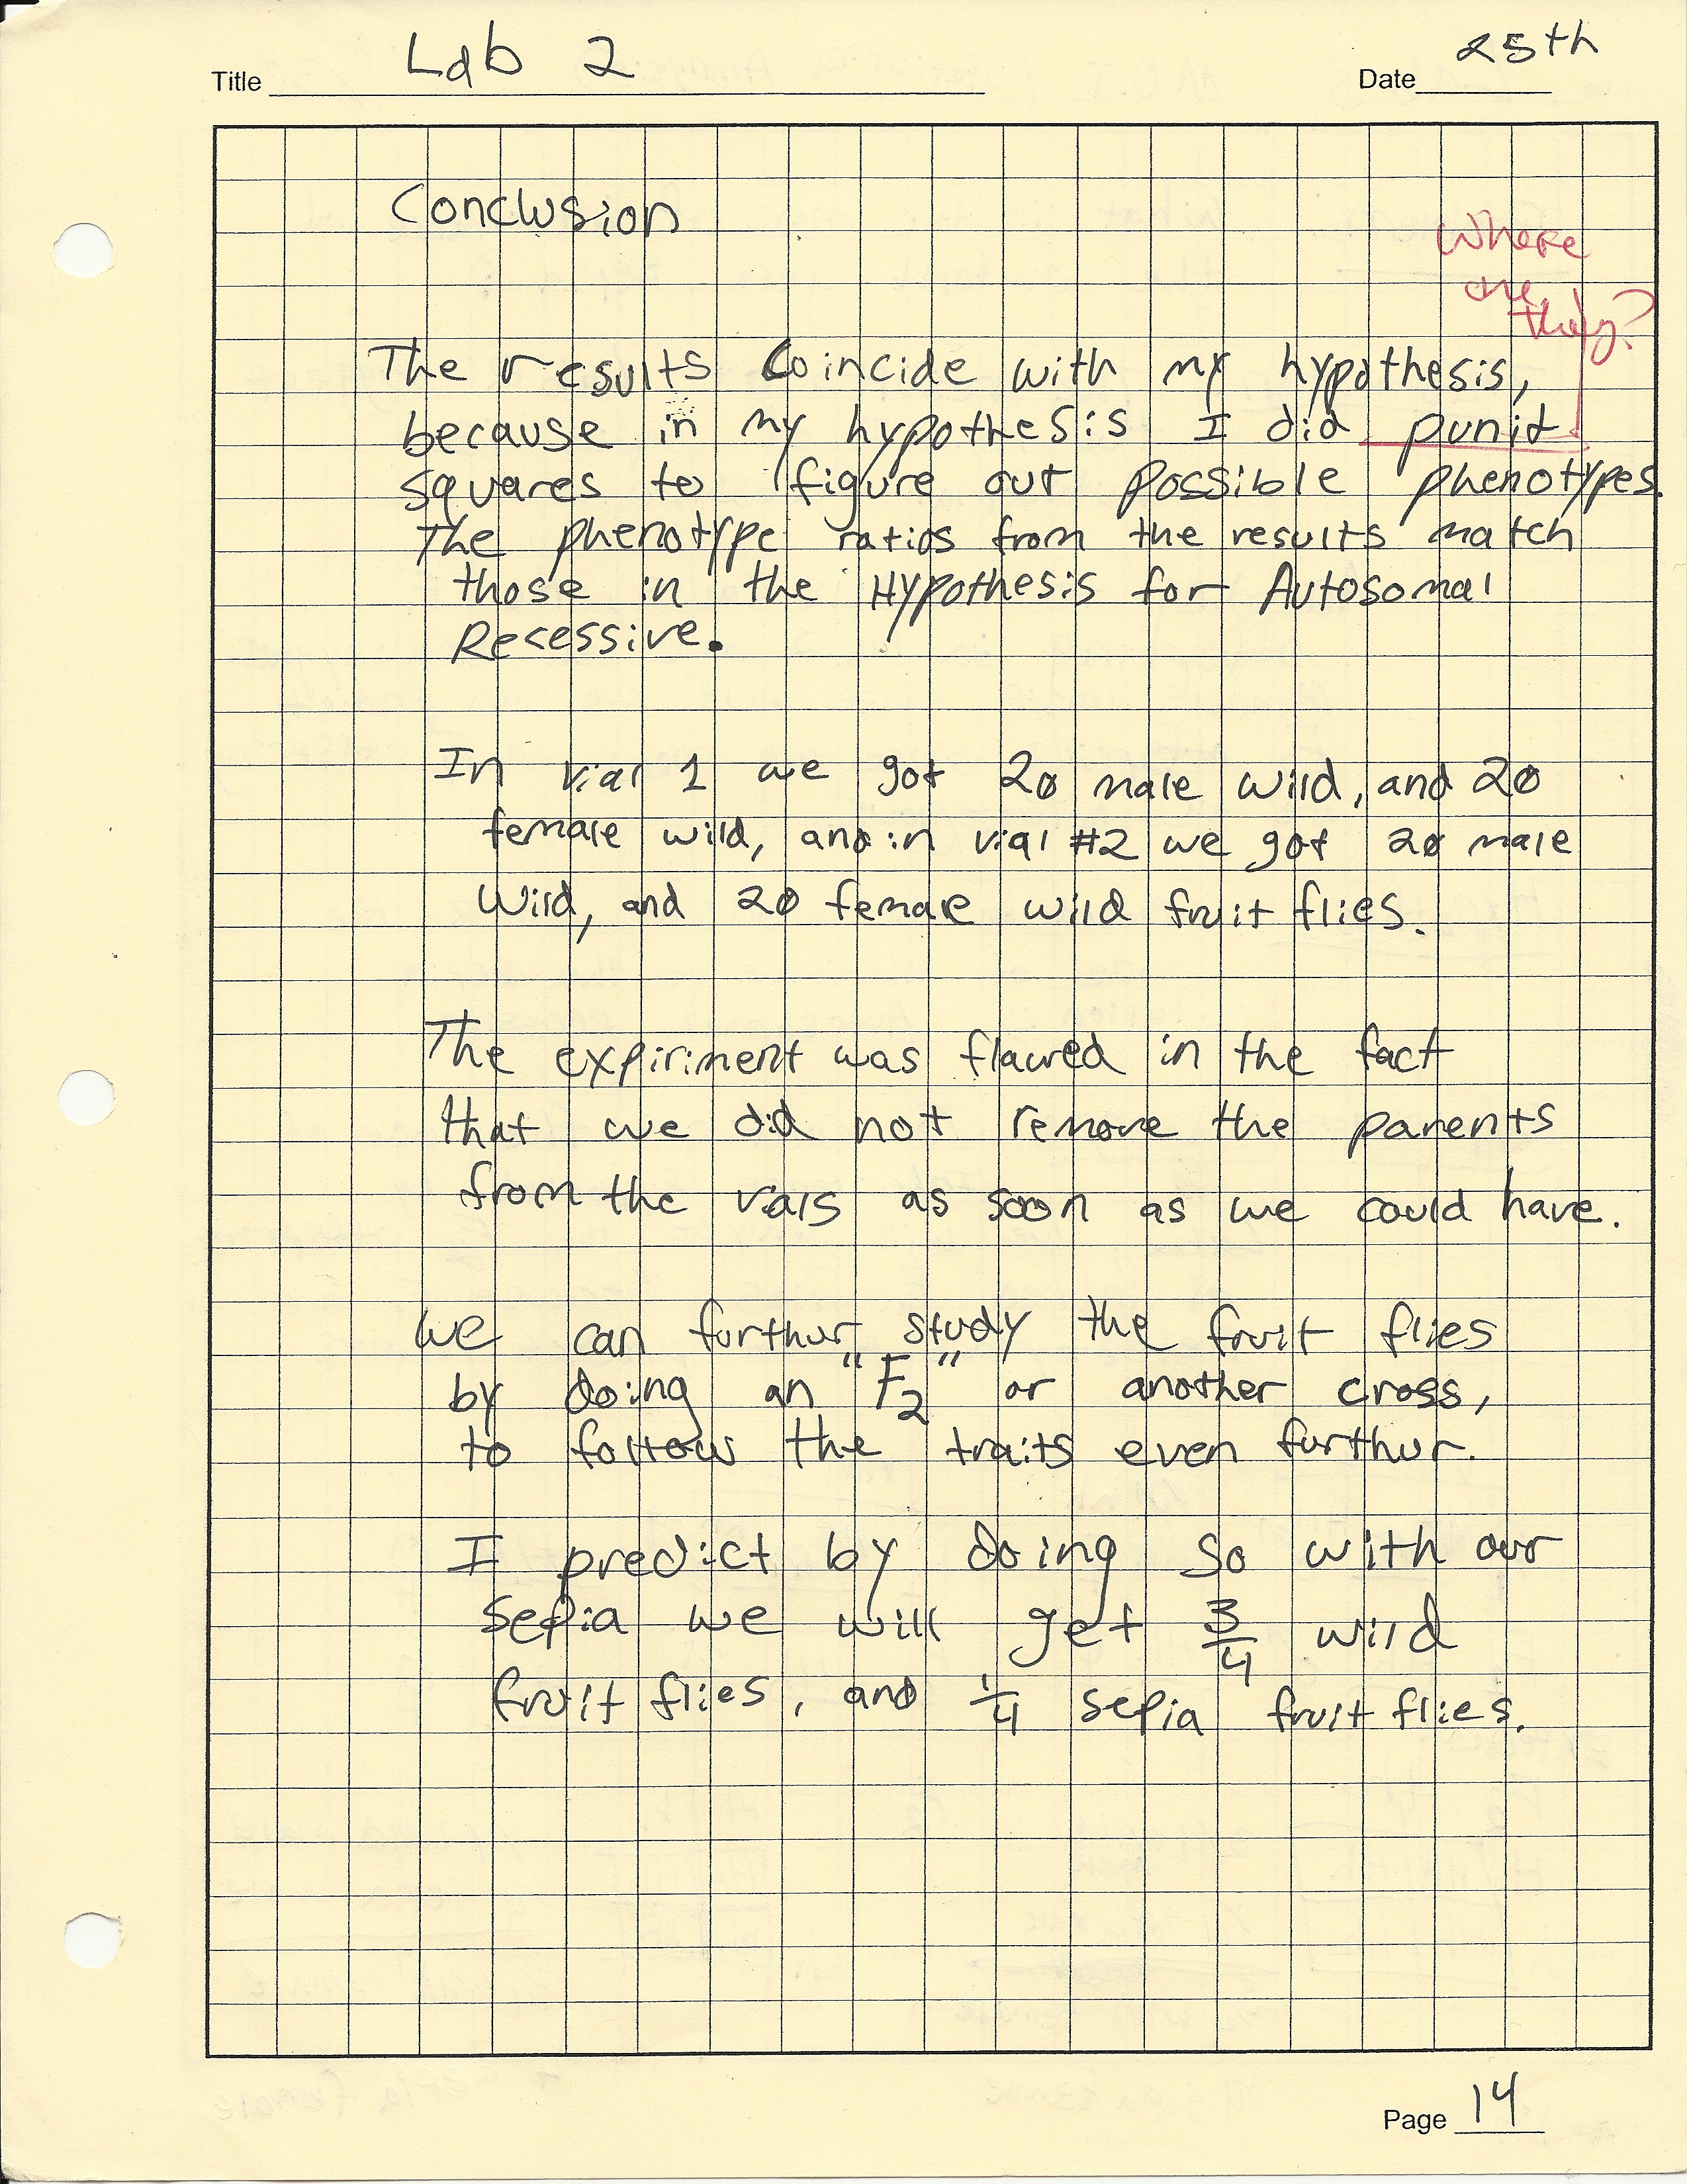 Title Lab 2 Date 25th
Conclusion
Where
are
they?
The results Coincide with my hypothesis,
because in my hypothesis I did punit
squares to figure out possible phenotypes.
The phenotype ratios from the results match
those in the Hypothesis for Autosomal
Recessive.
In vial 1 we got 20 male wild, and 20
female wild, and in vial #2 we got 20 male
Wild, and 20 female wild fruit flies.
The expiriment was flawed in the fact
that we did not remove the parents
from the vials as soon as we could have.
We can furthur study the fruit flies
by doing an "F2" or another cross,
to follow the traits even furthur.
I predict by doing so with our
sepia we will get 3/4 wild
fruit flies, and 1/4 sepia fruit flies.
Page 14